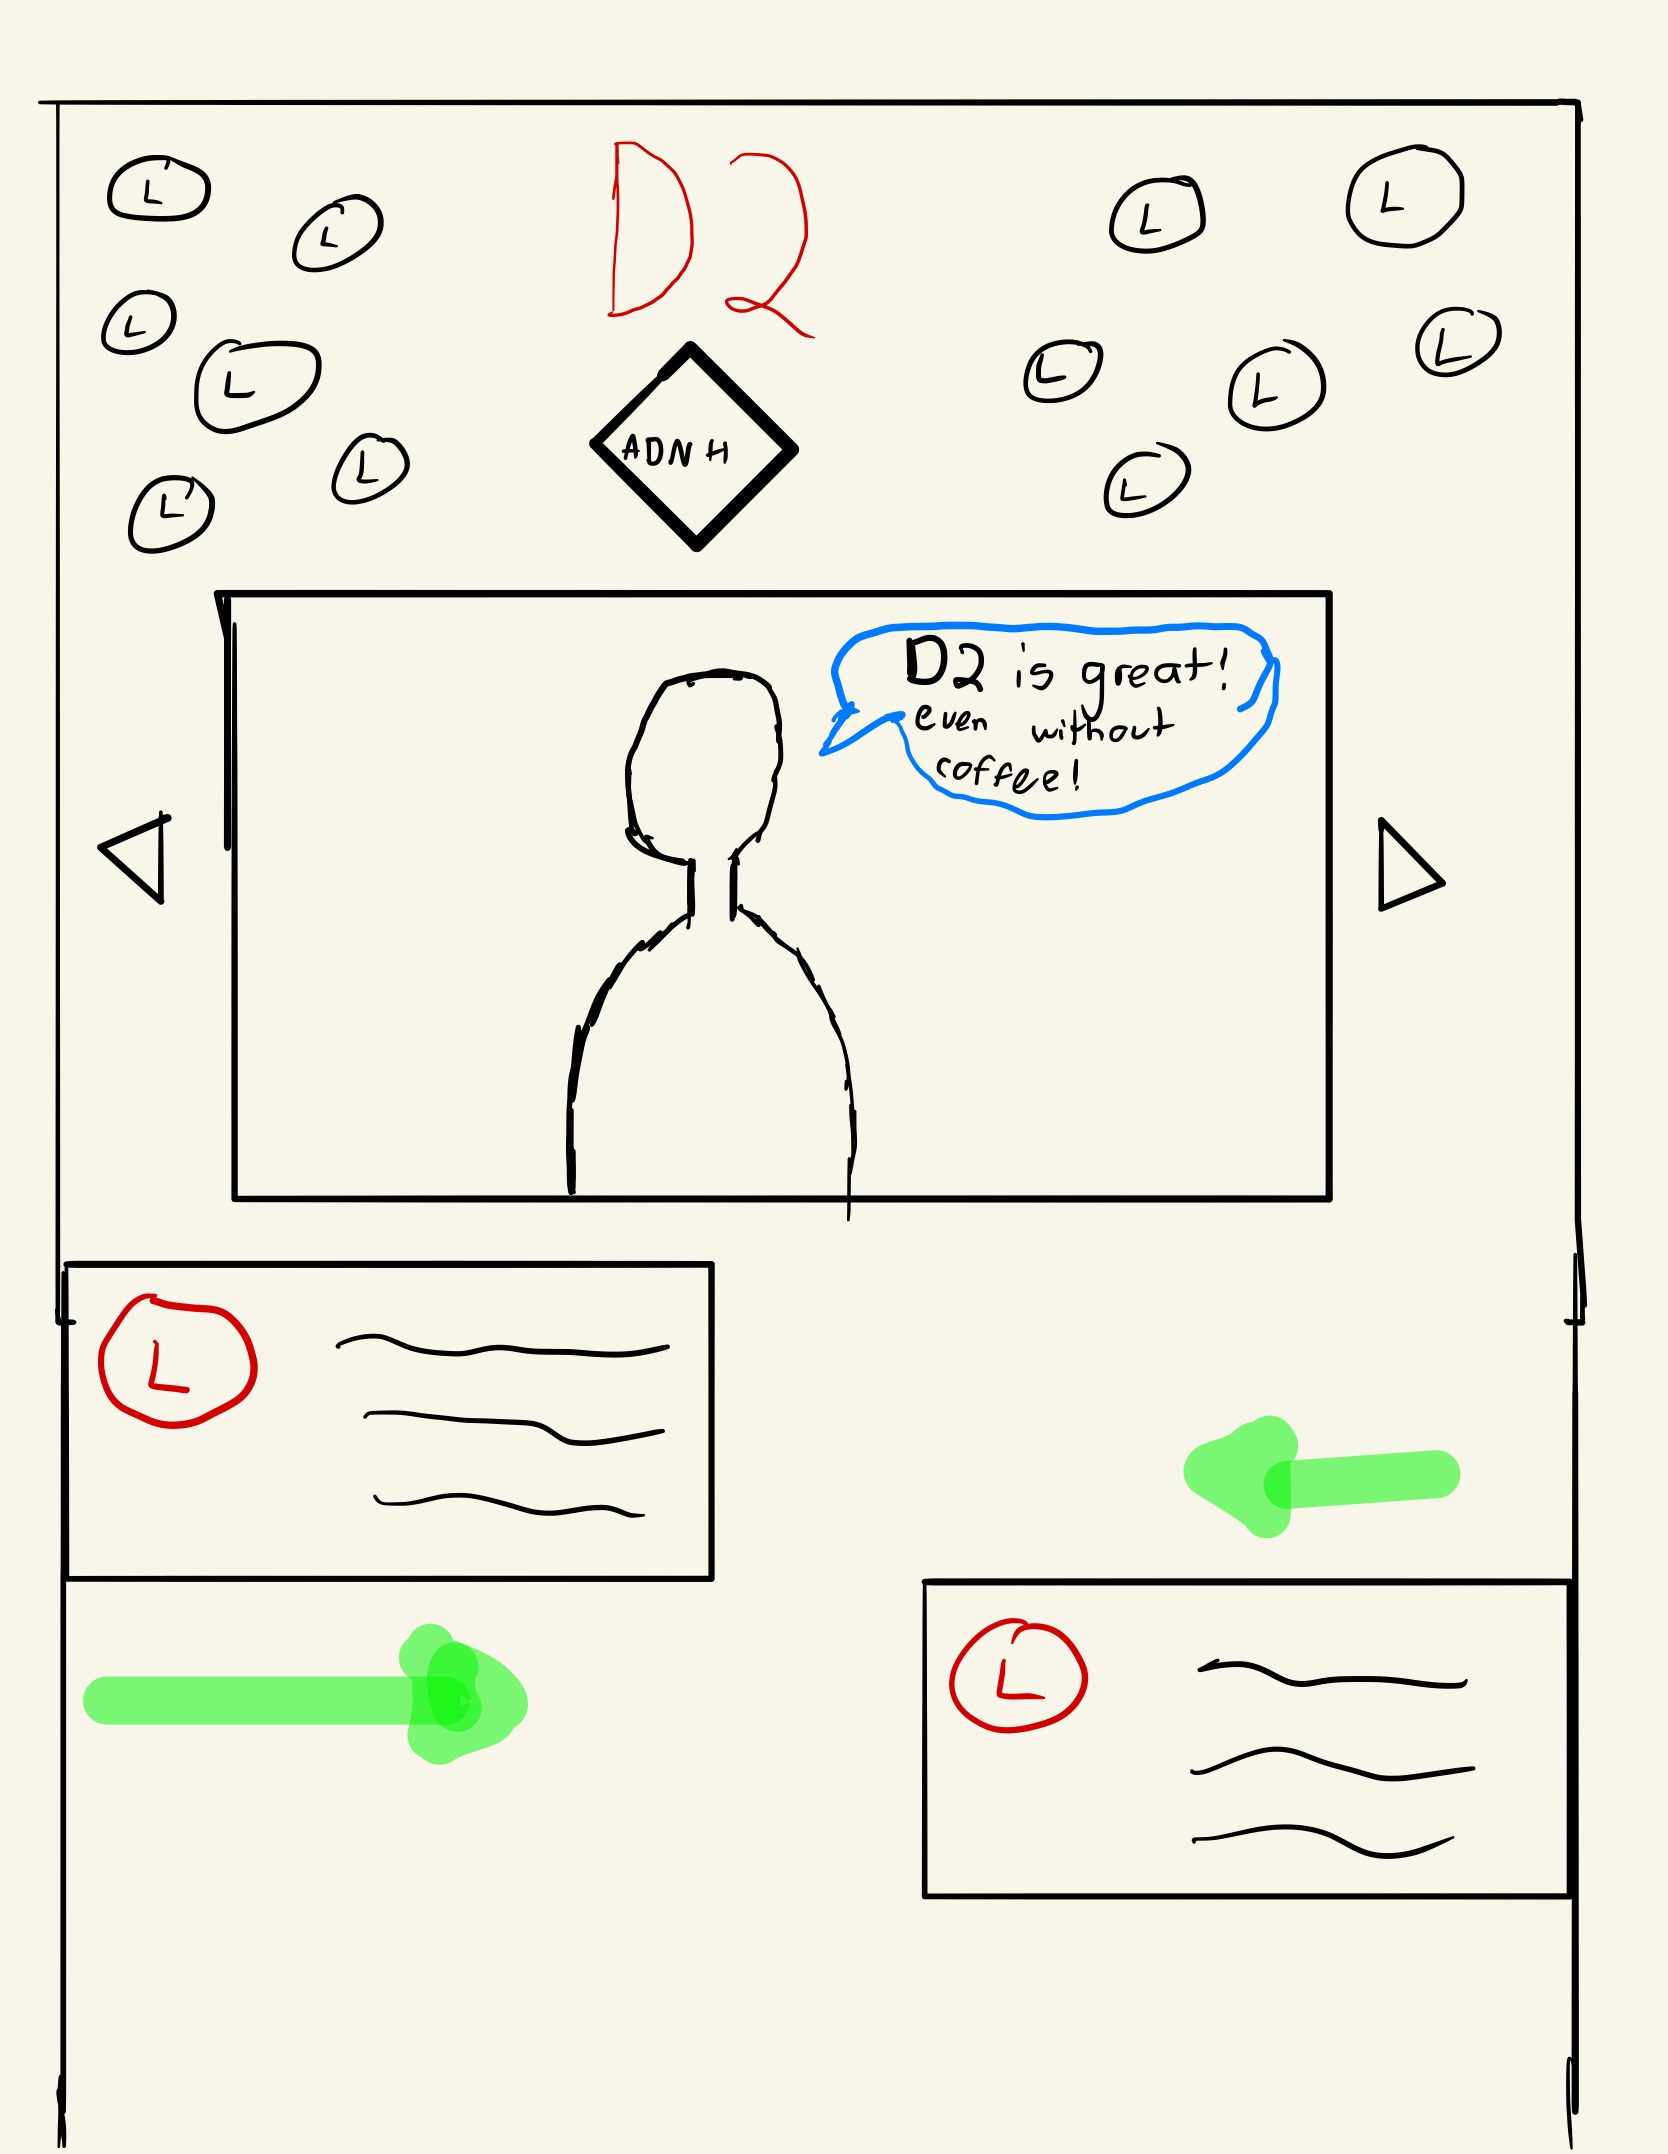 L
L
L
L
L
L
D2
ADNH
L
L
L
L
L
L
D2 is great!
even without
coffee!
L
L